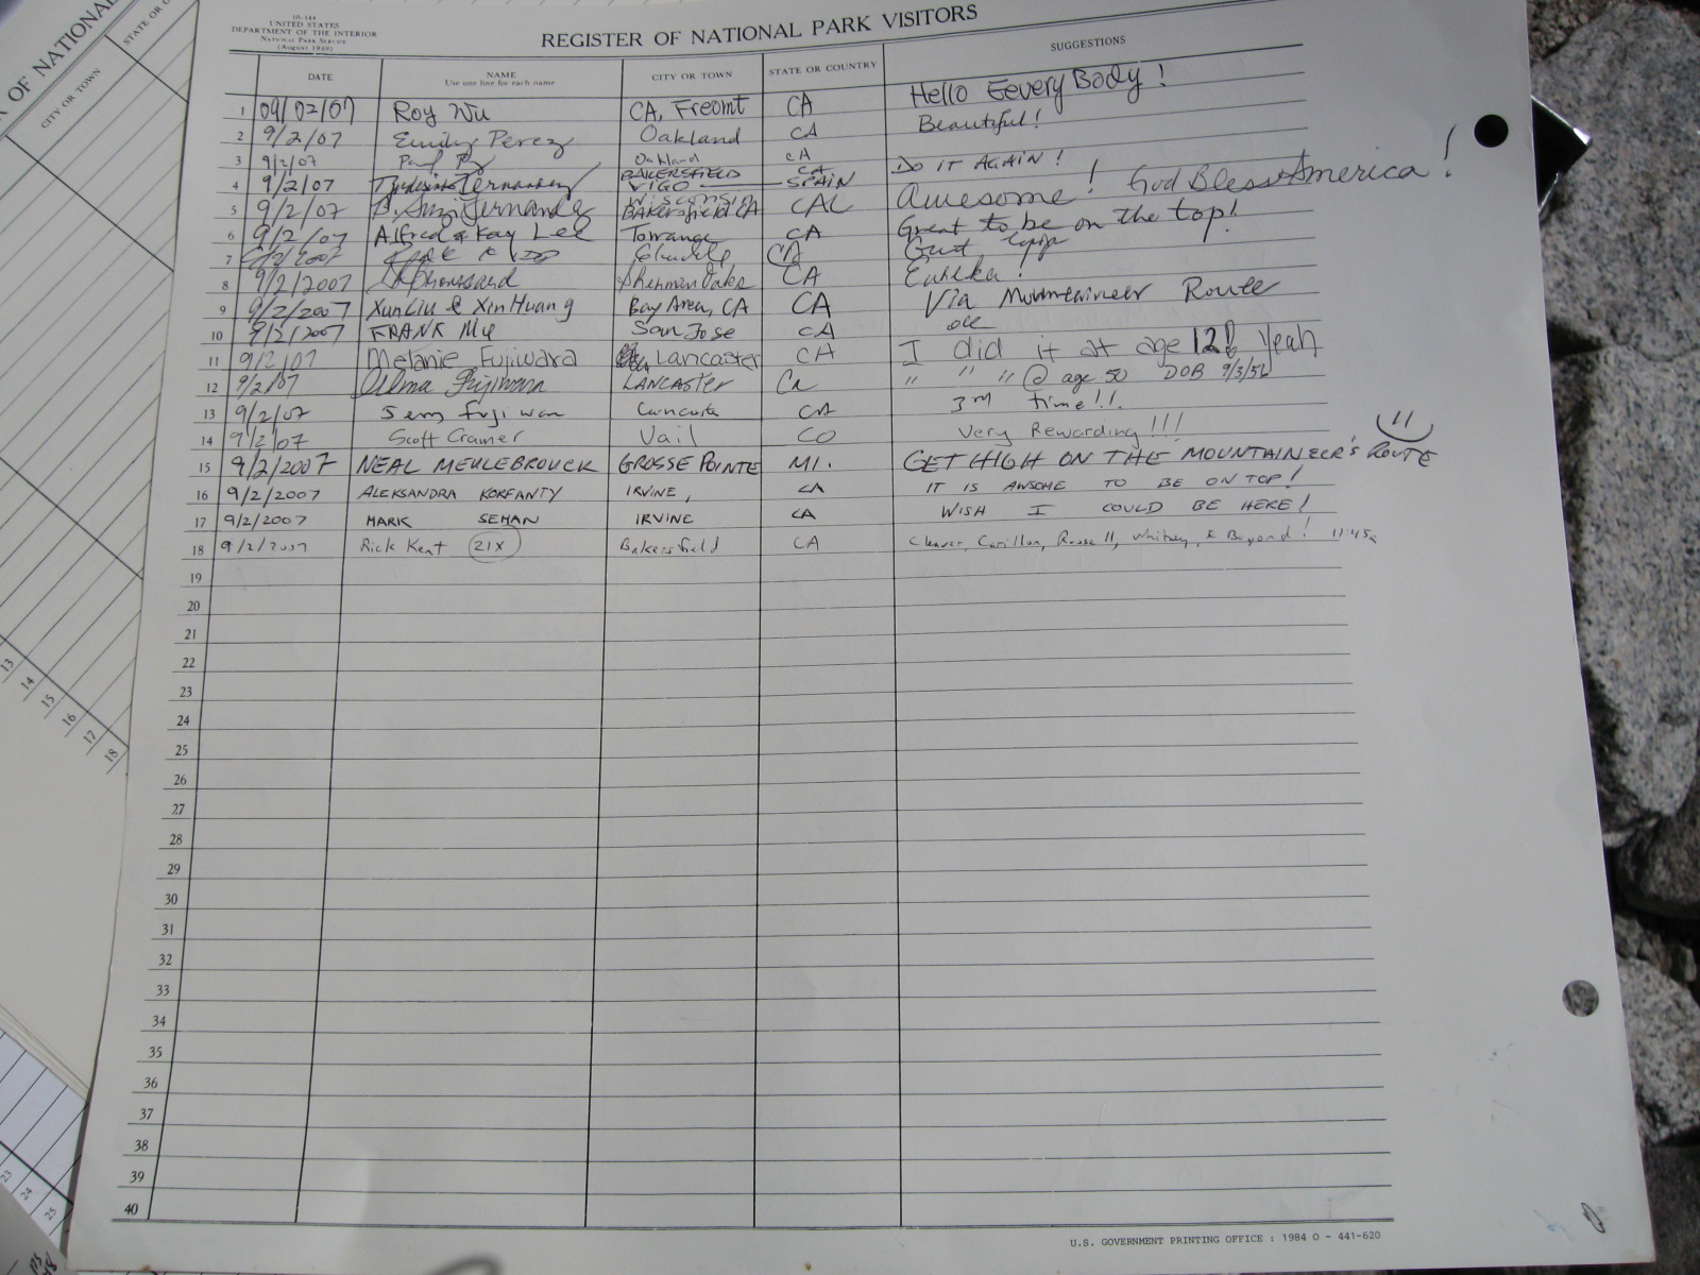 OF NATIONAL
STATE OR C
CITY OR TOWN
13
14
15
16
17
18
10-144
UNITED STATES
DEPARTMENT OF THE INTERIOR
NATIONAL PARK SERVICE
(August 1949)
REGISTER OF NATIONAL PARK VISITORS
DATE NAME CITY OR TOWN STATE OR COUNTRY SUGGESTIONS
Use one line for each name
1 09/02/07 Roy Wu CA, Freomt CA Hello Eevery Body!
2 9/2/07 Emily Perez Oakland CA Beautiful!
3 9/2/07 Paul Oakland CA DO IT AGAIN!
BAKERSFIELD CA
4 9/2/07 Fernandez VIGO SPAIN Awesome! God Bless America!
WISCONSIN
5 9/2/07 Suzi Fernandez Bakersfield CA CAL Great to be on the top!
6 9/2/07 Alfred & Kay Lee Torrance CA
7 9/2/2007 Glendale CA
8 9/2/2007 Sherman Oaks CA Eureka!
9 9/2/2007 Xun Liu & Xin Huang Bay Area, CA CA Via Mountaineer Route
10 9/2/2007 FRANK San Jose CA
11 9/2/07 Melanie Fujiwara Lancaster CA I did it at age 12! Yeah
12 9/2/07 Fujiwara LANCASTER Ca " " " @ age 50 DOB 9/3/56
13 9/2/07 Lancaster CA 3rd time!!
14 9/2/07 Scott Cramer Vail CO Very Rewarding!!!
15 9/2/2007 NEAL MEULEBROUCK GROSSE POINTE MI. GET HIGH ON THE MOUNTAINEER'S ROUTE
16 9/2/2007 ALEKSANDRA KORFANTY IRVINE, CA IT IS AWSOME TO BE ON TOP!
17 9/2/2007 MARK SEMAN IRVINE CA WISH I COULD BE HERE!
18 9/2/2007 Rick Kent 21X Bakersfield CA Cleaver, Carillon, Russell, Whitney, & Beyond! 11:45a
19
20
21
22
23
24
25
26
27
28
29
30
31
32
33
34
35
36
37
38
39
40
23
24
25
U.S. GOVERNMENT PRINTING OFFICE : 1984 O - 441-620